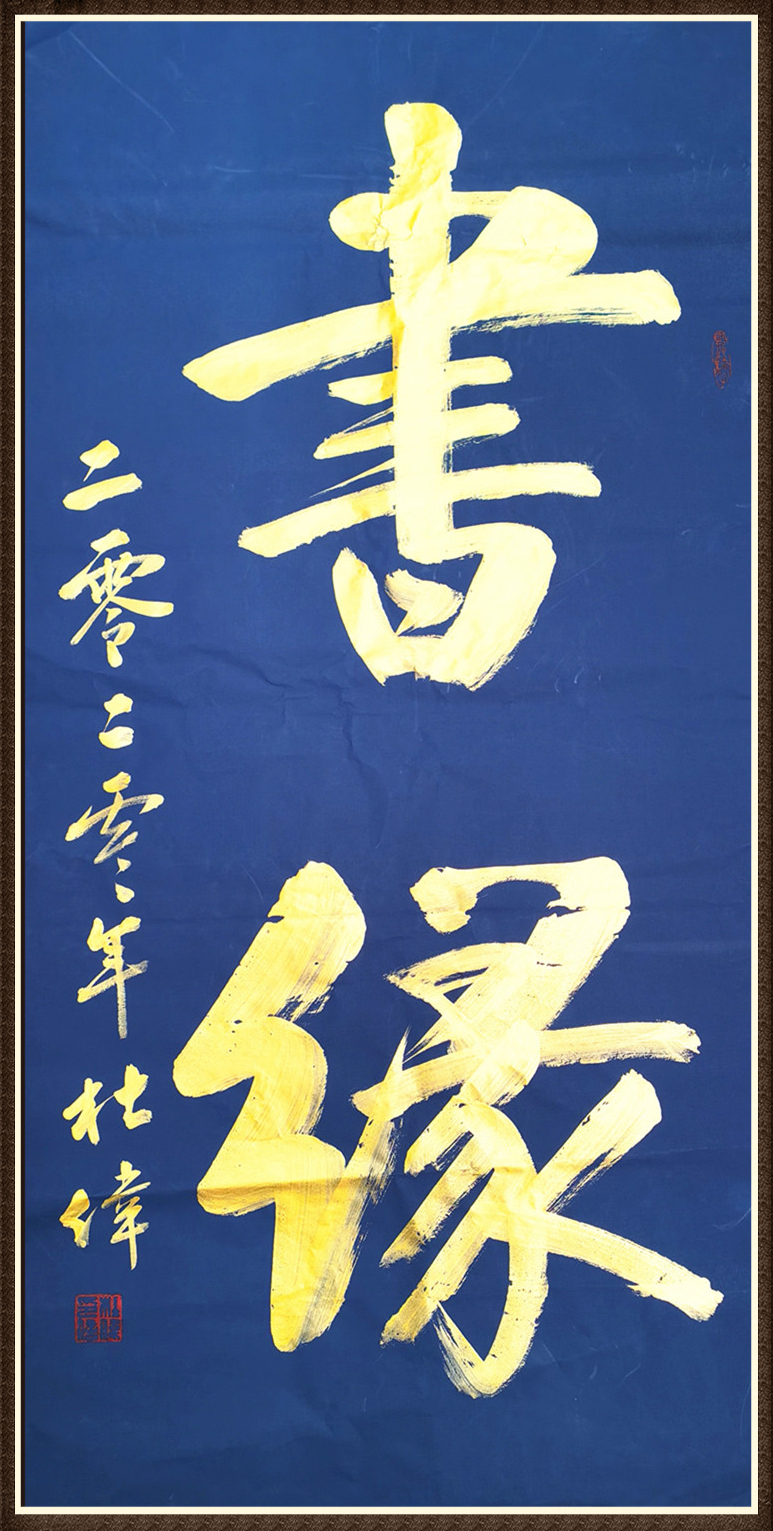 書緣
二零二零年杜偉